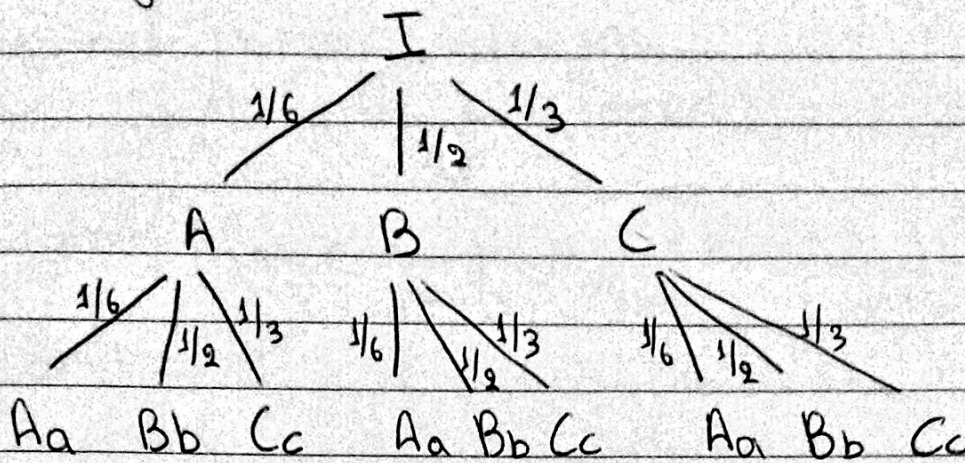 I
1/6 1/2 1/3
A B C
1/6 1/2 1/3 1/6 1/2 1/3 1/6 1/2 1/3
Aa Bb Cc Aa Bb Cc Aa Bb Cc